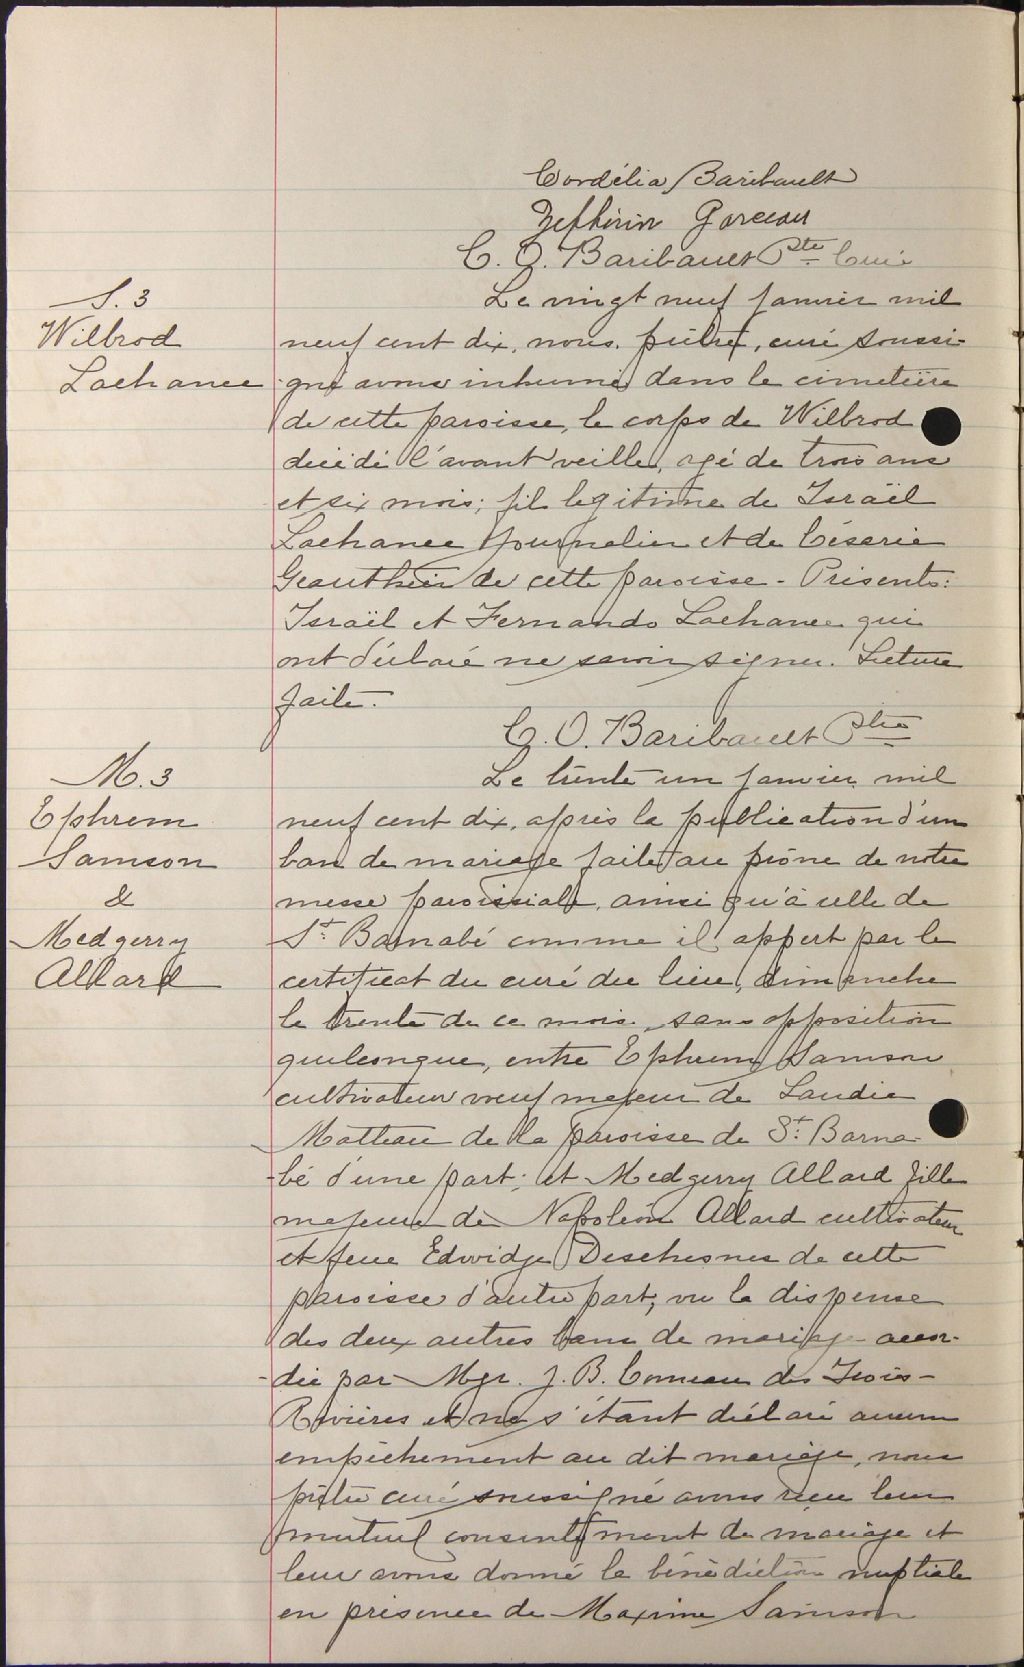 Cordélia Baribault
Zephirin Garceau
C. O. Baribault Ptre Curé
S. 3
Wilbrod
Lachance
Le vingt neuf janvier mil
neuf cent dix, nous, prêtre, curé soussi-
gné avons inhumé dans le cimetière
de cette paroisse, le corps de Wilbrod
décédé l'avant veille, agé de trois ans
et six mois; fil legitime de Israël
Lachance journalier et de Césarie
Geauthier de cette paroisse - Présents:
Israël et Fernando Lachance qui
ont déclaré ne savoir signer. Lecture
faite.
C. O. Baribault Ptre
M. 3
Ephrem
Samson
&
Medgerry
Allard
Le trente un janvier mil
neuf cent dix, après la publication d'un
ban de mariage faite au prône de notre
messe paroissiale, ainsi qu'à celle de
St. Barnabé comme il appert par le
certificat du curé du lieu, dimanche
le trente de ce mois, sans opposition
quelconque, entre Ephrem Samson
cultivateur veuf majeur de Laudia
Matteau de la paroisse de St. Barna-
-bé d'une part; et Medgerry Allard fille
majeure de Napoléon Allard cultivateur
et feue Edwidge Deschesnes de cette
paroisse d'autre part; vu la dispense
des deux autres bans de mariage accor-
-dée par Mgr. J. B. Comeau des Trois-
Rivières et ne s'étant déclaré aucun
empêchement au dit mariage, nous
prêtre curé soussigné avons reçu leur
mutuel consentement de mariage et
leur avons donné la bénédiction nuptiale
en présence de Maxime Samson